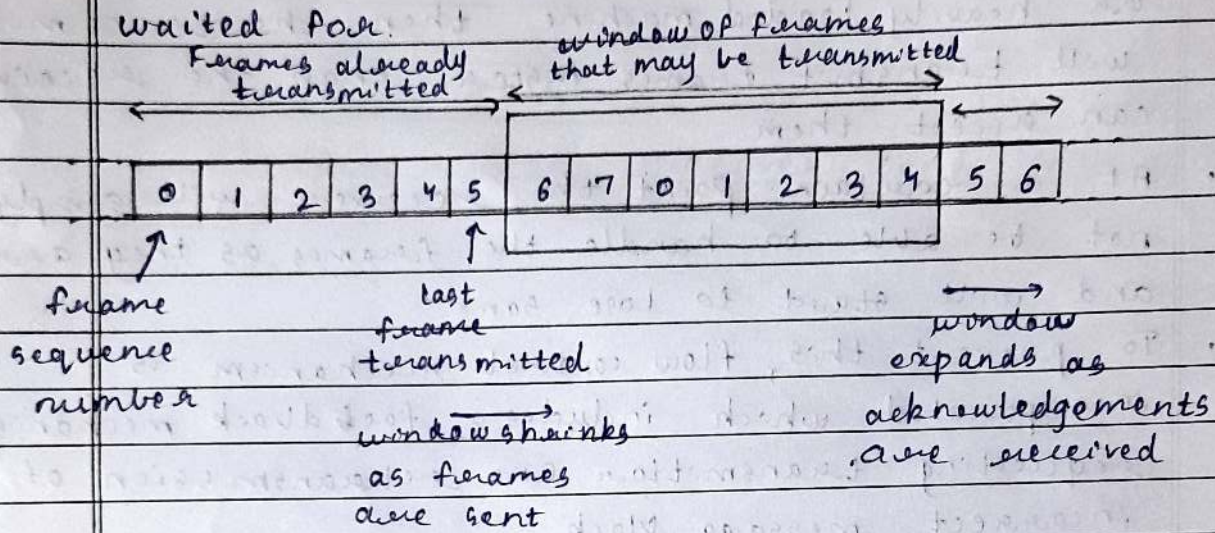 waited for.
Frames already
transmitted
window of frames
that may be transmitted
0 1 2 3 4 5 6 7 0 1 2 3 4 5 6
frame
sequence
number
last
frame
transmitted
window shrinks
as frames
are sent
window
expands as
acknowledgements
are received